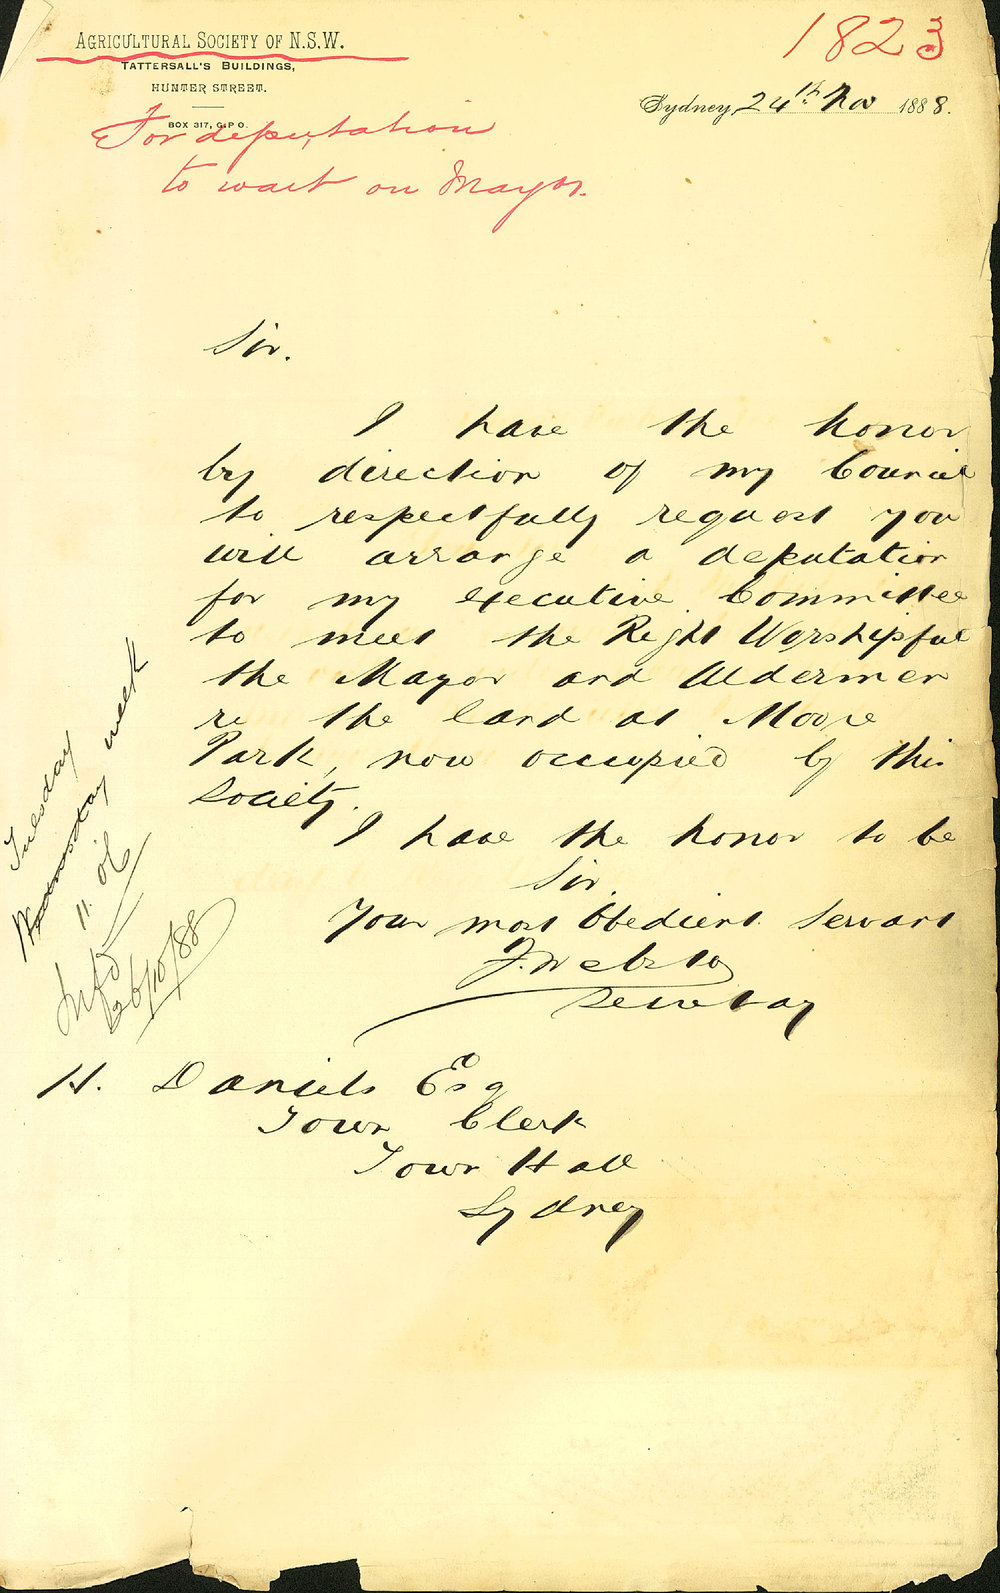 AGRICULTURAL SOCIETY OF N.S.W.
TATTERSALL'S BUILDINGS,
HUNTER STREET.
BOX 317, G.P.O.
1823
Sydney, 24th Nov 1888.
For deputation
to wait on Mayor.
Sir.
I have the honor
by direction of my Council
to respectfully request you
will arrange a deputation
for my executive Committee
to meet the Right Worshipful
the Mayor and Aldermen
re the land at Moore
Park, now occupied by this
Society.
I have the honor to be
Sir.
Your most Obedient Servant
F. Webster
Secretary
Tuesday
week
11. o'c
26/10/88
H. Daniels Esq
Town Clerk
Town Hall
Sydney